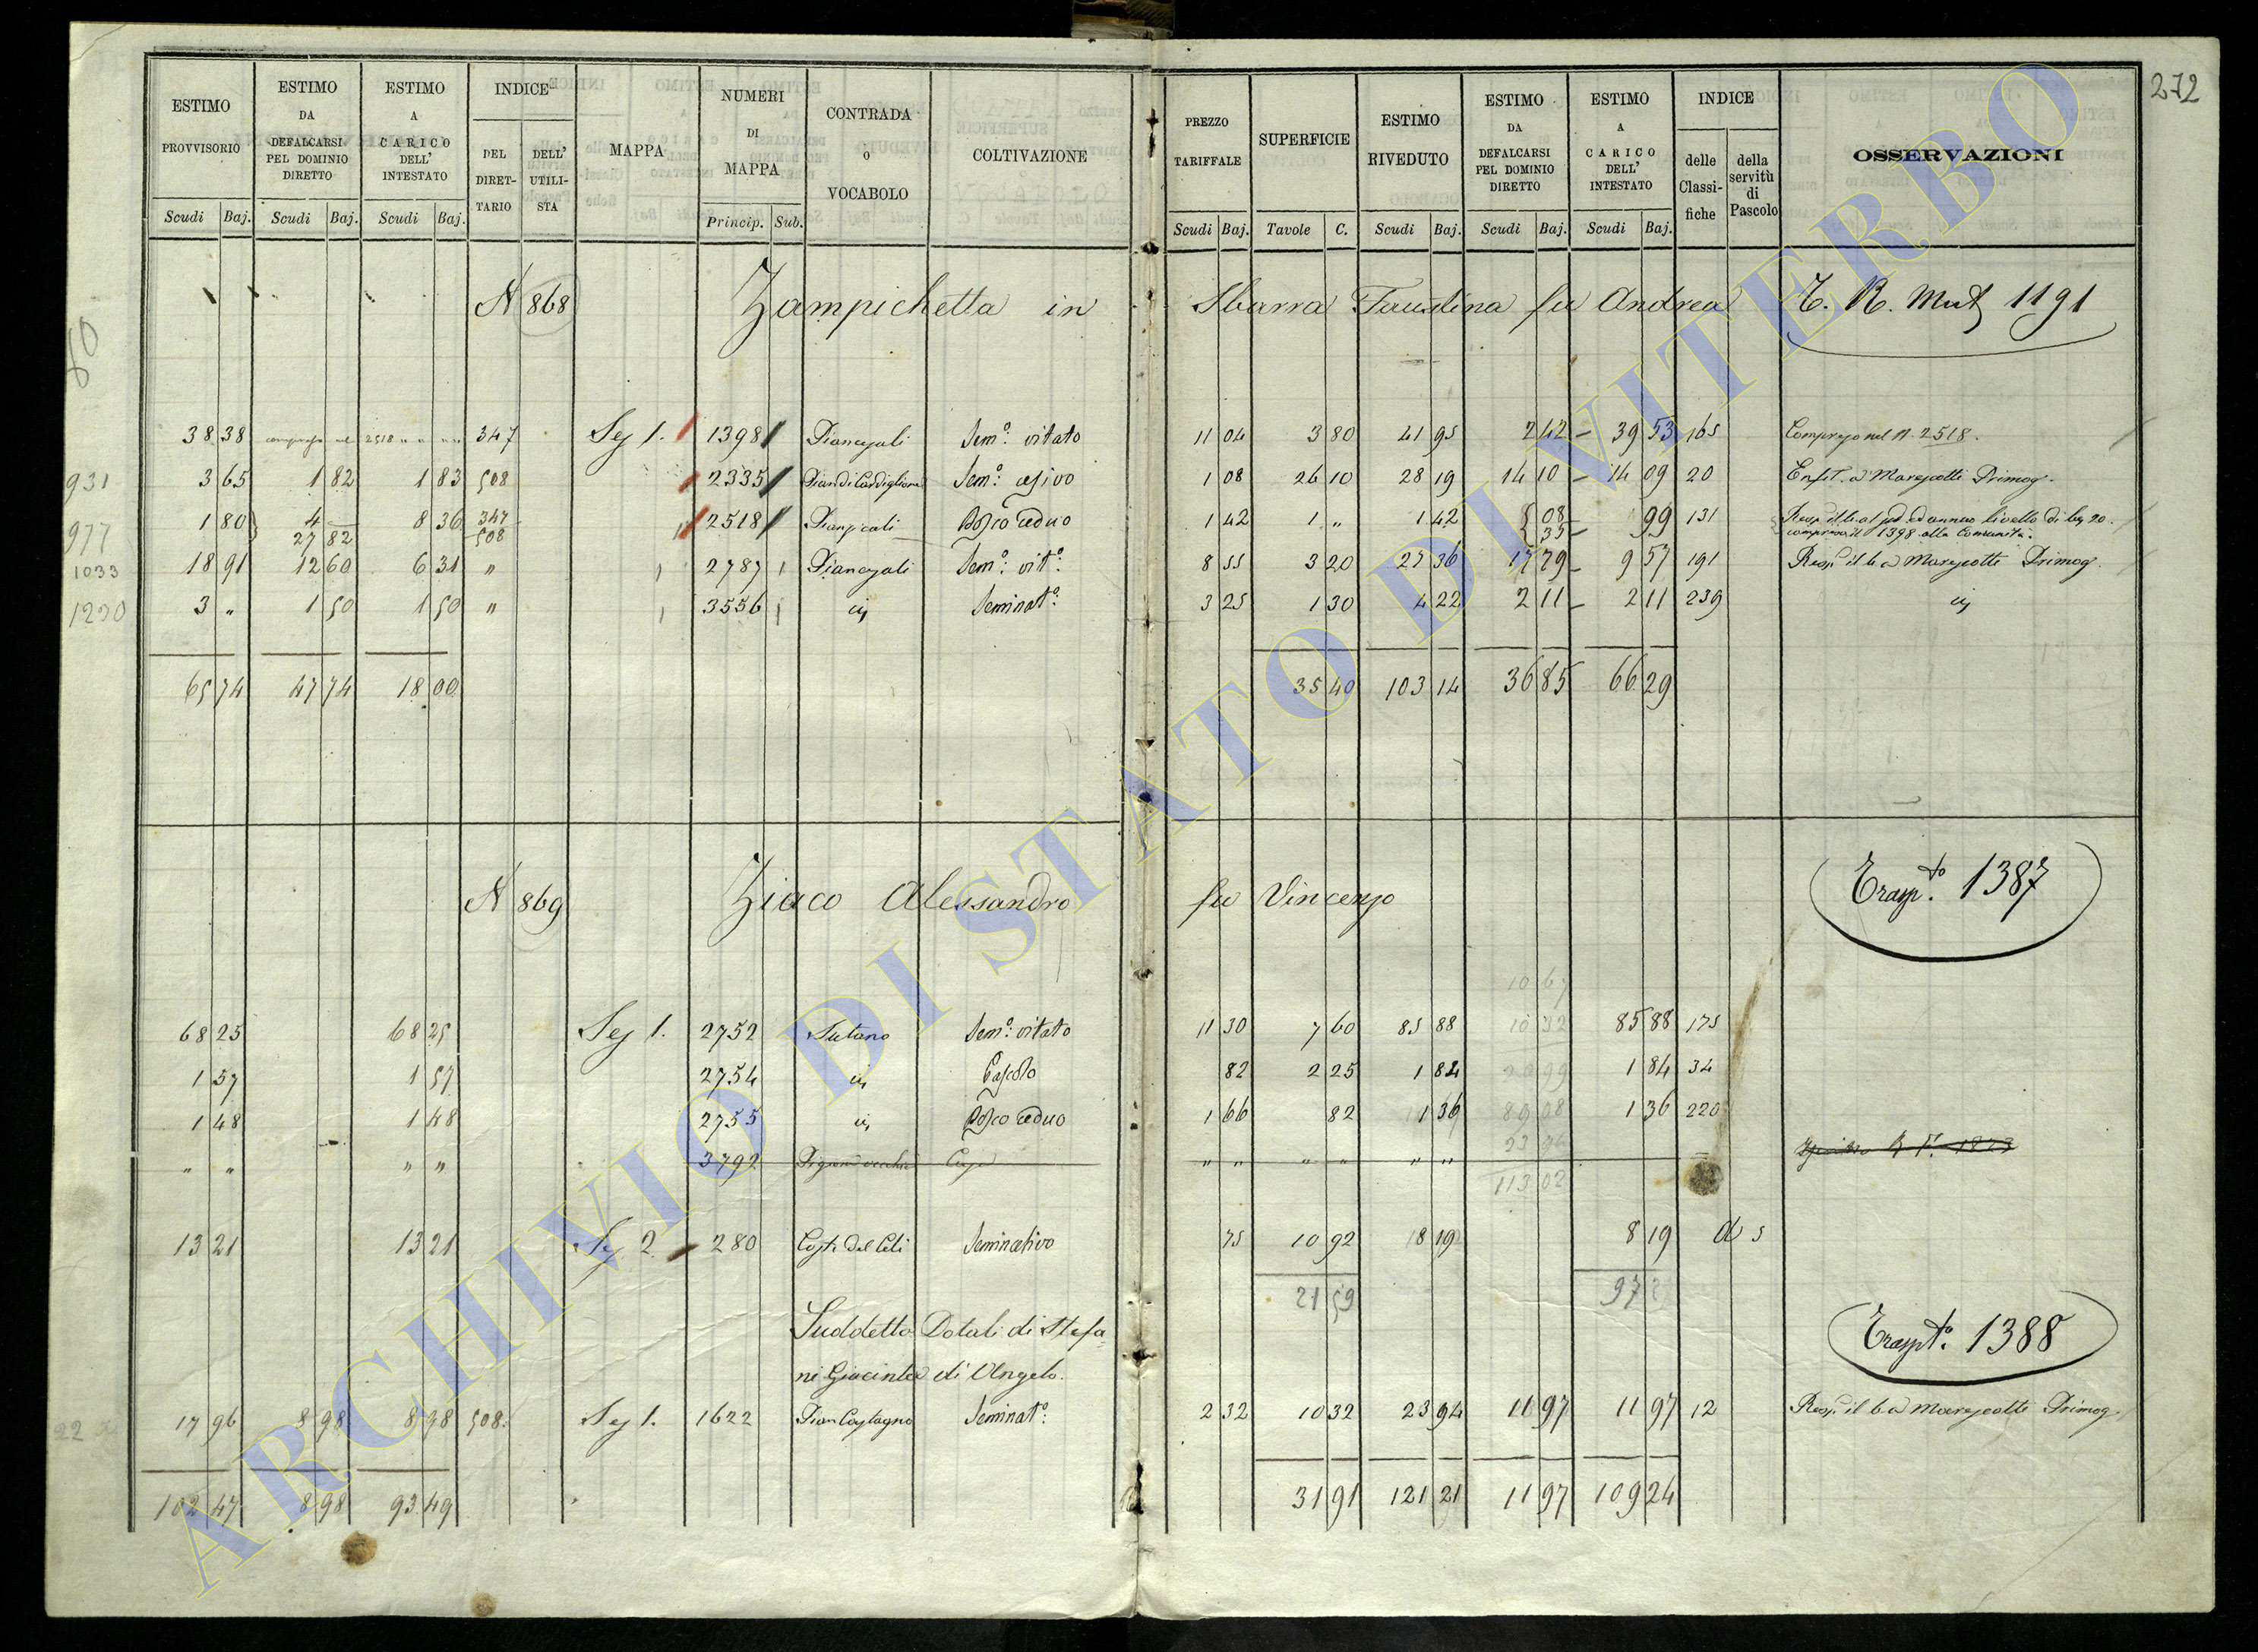 272
ESTIMO PROVVISORIO Scudi Baj.
ESTIMO DA DEFALCARSI PEL DOMINIO DIRETTO Scudi Baj.
ESTIMO A CARICO DELL' INTESTATO Scudi Baj.
INDICE DEL DIRETTARIO DELL' UTILISTA
MAPPA
NUMERI DI MAPPA Princip. Sub.
CONTRADA o VOCABOLO
COLTIVAZIONE
PREZZO TARIFFALE Scudi Baj.
SUPERFICIE Tavole C.
ESTIMO RIVEDUTO Scudi Baj.
ESTIMO DA DEFALCARSI PEL DOMINIO DIRETTO Scudi Baj.
ESTIMO A CARICO DELL' INTESTATO Scudi Baj.
INDICE delle Classifiche della servitù di Pascolo
OSSERVAZIONI
N 868 Zampichetta in Sbarra Faustina fu Andrea T. R. Mut 1191
38 38 2518 347 Sez 1. 1398 Piancajali Sem.º vitato 11 04 3 80 41 95 2 42 39 53 165 Compreso nel N. 2518.
931 3 65 1 82 1 83 508 2335 Sem.º 1 08 26 10 28 19 14 10 14 09 20 Enfit. a Marescotti Primog.
977 1 80 4 — 8 36 347 2518 Bosco ceduo 1 42 1 „ 1 42 08 99 131 annuo livello di
27 82 508 35 1398 alla Comunità.
1033 18 91 12 60 6 31 „ 2787 Piancajali Sem.º vit.º 8 55 3 20 27 36 17 79 9 57 191 Resp. il b. a Marescotti Primog.
1290 3 „ 1 50 1 50 „ 3556 Seminat.º 3 25 1 30 4 22 2 11 2 11 239
65 74 47 74 18 00 35 40 103 14 36 85 66 29
N 869 Ziaco Alessandro fu Vincenzo Trasp.to 1387
68 25 68 25 Sez 1. 2752 Sutano Sem.º vitato 11 30 7 60 85 88 10 32 85 88 175
1 57 1 57 2754 Pascolo 82 2 25 1 84 1 84 34
1 48 1 48 2755 Bosco ceduo 1 66 82 1 36 1 36 220
„ „ „ „ 3792 „ „ „ „ „ „
113 02
13 21 13 21 Sez 2. 280 Seminativo 75 10 92 8 19 8 19
21 59 97
Suddetto Dotali di Stefa
ni Giacinta di Angelo. Traspt.º 1388
17 96 8 98 8 98 508 Sez 1. 1622 Pian Castagno Seminat.º 2 32 10 32 23 94 11 97 11 97 12 Resp. il b. a Marescotti Primog.
102 47 8 98 93 49 31 91 121 21 11 97 109 24
ARCHIVIO DI STATO DI VITERBO